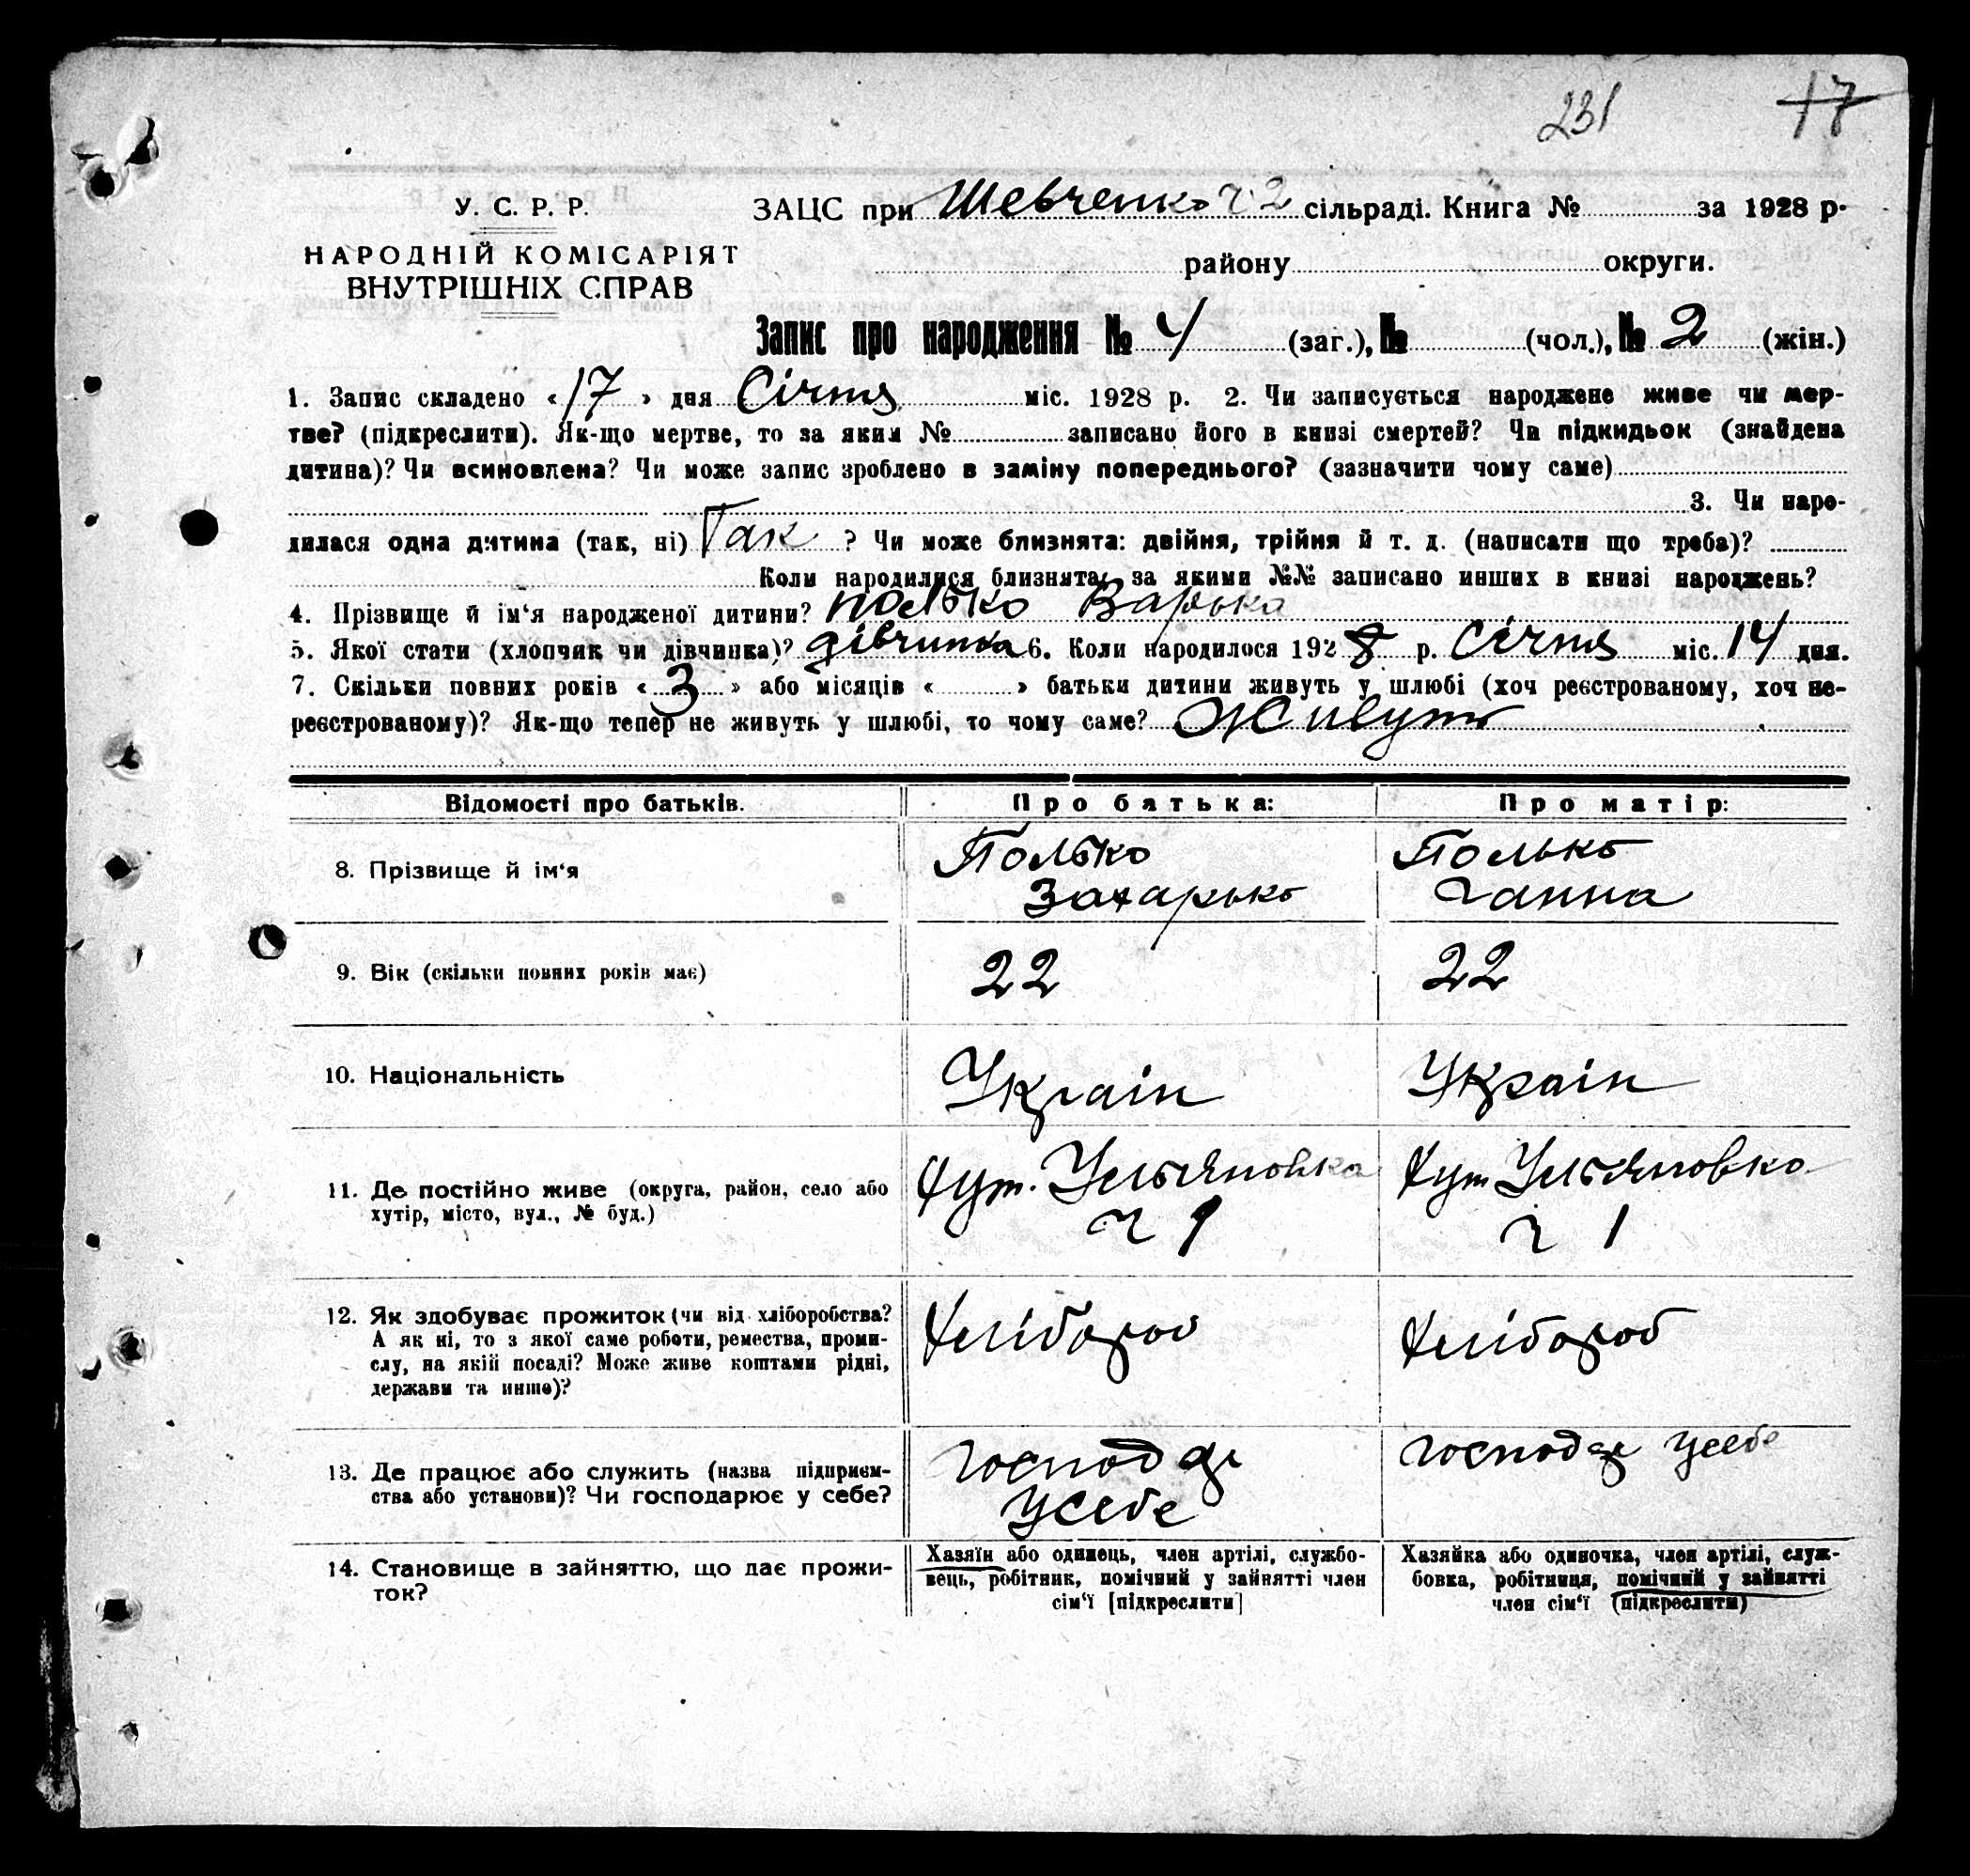 231 17
У. С. Р. Р.
ЗАЦС при Шевченко ч 2 сільраді. Книга № за 1928 р.
НАРОДНІЙ КОМІСАРІЯТ
ВНУТРІШНІХ СПРАВ
району округи.
Запис про народження № 4 (заг.), № (чол.), № 2 (жін.)
1. Запис складено « 17 » дня Січня міс. 1928 р. 2. Чи записується народжене живе чи мер-
тве? (підкреслити). Як-що мертве, то за яким № записано його в книзі смертей? Чи підкидьок (знайдена
дитина)? Чи всиновлена? Чи може запис зроблено в заміну попереднього? (зазначити чому саме)
3. Чи наро-
дилася одна дитина (так, ні) Так ? Чи може близнята: двійня, трійня й т. д. (написати що треба)?
Коли народилися близнята, за якими №№ записано инших в книзі народжень?
4. Прізвище й ім‘я народженої дитини? Полько Варька
5. Якої стати (хлопчик чи дівчинка)? дівчинка 6. Коли народилося 1928 р. Січня міс. 14 дня.
7. Скільки повних років « 3 » або місяців « » батьки дитини живуть у шлюбі (хоч реєстрованому, хоч не-
реєстрованому)? Як-що тепер не живуть у шлюбі, то чому саме? Живуть
Відомості про батьків. Про батька: Про матір:
8. Прізвище й ім‘я
Полько
Захарько
Полько
Ганна
9. Вік (скільки повних років має) 22 22
10. Національність Украін Украін
11. Де постійно живе (округа, район, село або
хутір, місто, вул., № буд.)
Хут. Ульяновка
ч 1
Хут Ульяновка
ч 1
12. Як здобуває прожиток (чи від хліборобства?
А як ні, то з якої саме роботи, ремества, проми-
слу, на якій посаді? Може живе коштами рідні,
держави та инше)?
Хлібороб
Хлібороб
13. Де працює або служить (назва підприєм-
ства або установи)? Чи господарює у себе?
Усебе
усебе
14. Становище в зайняттю, що дає прожи-
ток?
Хазяїн або одинець, член артілі, службо-
вець, робітник, помічний у зайнятті член
сім‘ї [підкреслити]
Хазяйка або одиночка, член артілі, служ-
бовка, робітниця, помічний у зайнятті
член сім‘ї (підкреслити)